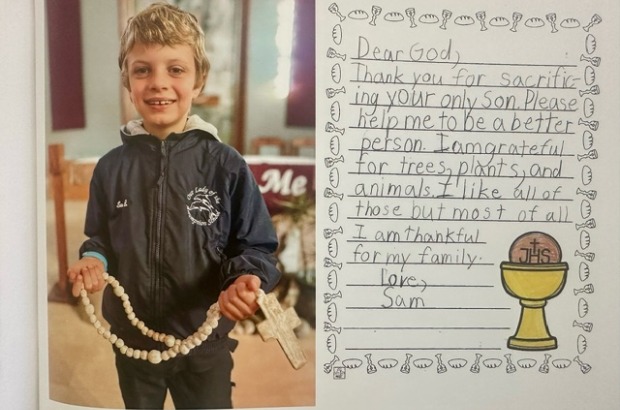 Me
Sam
Our Lady of the
Dear God,
Thank you for sacrific-
ing your only Son. Please
help me to be a better
person. I am grateful
for trees, plants, and
animals. I like all of
those but most of all
I am thankful
for my family.
Love,
Sam
JHS